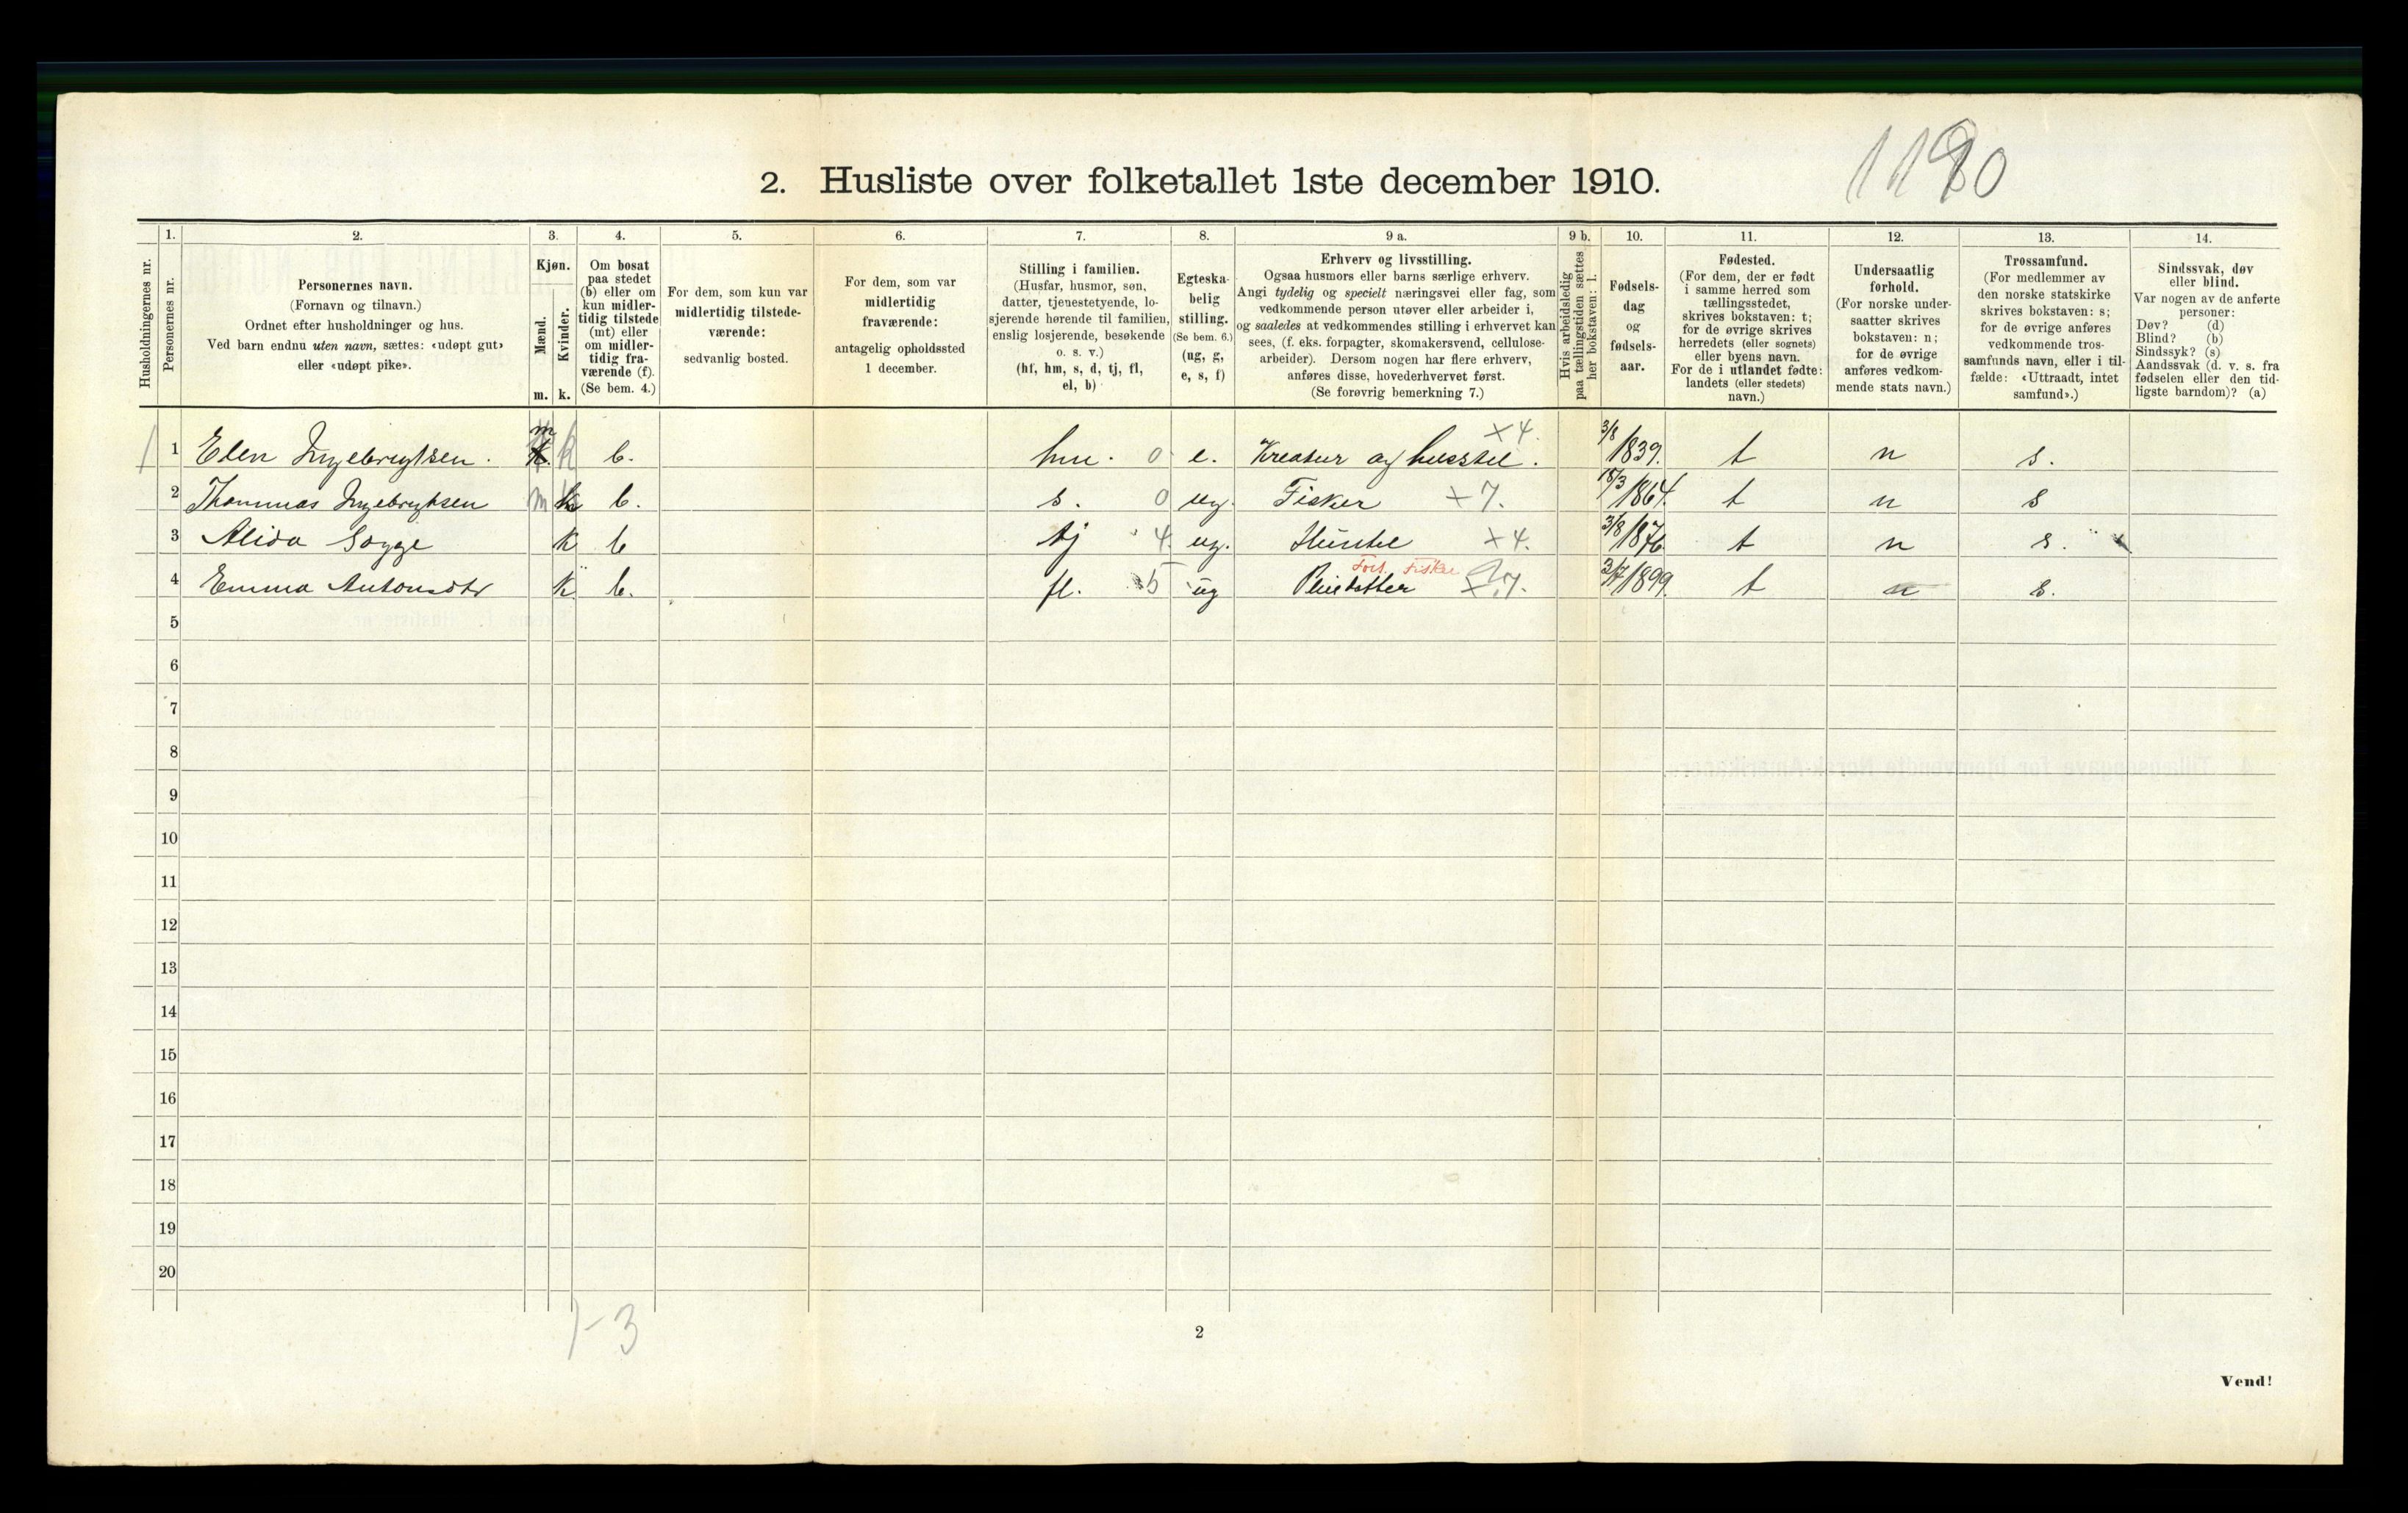 1190
2. Husliste over folketallet 1ste december 1910.
1. 2. 3. 4. 5. 6. 7. 8. 9 a. 9 b. 10. 11. 12. 13. 14.
Husholdningernes nr.
Personernes nr.
Personernes navn.
(Fornavn og tilnavn.)
Ordnet efter husholdninger og hus.
Ved barn endnu uten navn, sættes: «udøpt gut»
eller «udøpt pike».
Kjøn.
Mænd.
Kvinder.
m. k.
Om bosat
paa stedet
(b) eller om
kun midler-
tidig tilstede
(mt) eller
om midler-
tidig fra-
værende (f).
(Se bem. 4.)
For dem, som kun var
midlertidig tilstede-
værende:
sedvanlig bosted.
For dem, som var
midlertidig
fraværende:
antagelig opholdssted
1 december.
Stilling i familien.
(Husfar, husmor, søn,
datter, tjenestetyende, lo-
sjerende hørende til familien,
enslig losjerende, besøkende
o. s. v.)
(hf, hm, s, d, tj, fl,
el, b)
Egteska-
belig
stilling.
(Se bem. 6.)
(ug, g,
e, s, f)
Erhverv og livsstilling.
Ogsaa husmors eller barns særlige erhverv.
Angi tydelig og specielt næringsvei eller fag, som
vedkommende person utøver eller arbeider i,
og saaledes at vedkommendes stilling i erhvervet kan
sees, (f. eks. forpagter, skomakersvend, cellulose-
arbeider). Dersom nogen har flere erhverv,
anføres disse, hovederhvervet først.
(Se forøvrig bemerkning 7.)
Hvis arbeidsledig
paa tællingstiden sættes
her bokstaven: l.
Fødsels-
dag
og
fødsels-
aar.
Fødested.
(For dem, der er født
i samme herred som
tællingsstedet,
skrives bokstaven: t;
for de øvrige skrives
herredets (eller sognets)
eller byens navn.
For de i utlandet fødte:
landets (eller stedets)
navn.)
Undersaatlig
forhold.
(For norske under-
saatter skrives
bokstaven: n;
for de øvrige
anføres vedkom-
mende stats navn.)
Trossamfund.
(For medlemmer av
den norske statskirke
skrives bokstaven: s;
for de øvrige anføres
vedkommende tros-
samfunds navn, eller i til-
fælde: «Uttraadt, intet
samfund».)
Sindssvak, døv
eller blind.
Var nogen av de anførte
personer:
Døv? (d)
Blind? (b)
Sindssyk? (s)
Aandssvak (d. v. s. fra
fødselen eller den tid-
ligste barndom)? (a)
1 1 Elen Ingebrigtsen. k b. hm. 0 e. Kreatur og husstel. x4. 3/8 1839. t n s.
2 Thommas Ingebrigtsen m b. s. 0 ug. Fisker x7. 15/3 1864. t n s
3 Alida Sogge k b tj 4. ug. x4. 3/8 1876 t n s.
Fors. Fisker
4 Emma Antonsdtr k b. fl. 5 ug Pleiedatter x7. 3/7 1899. t n s.
5
6
7
8
9
10
11
12
13
14
15
16
17
18
19
20
1-3
2
Vend!